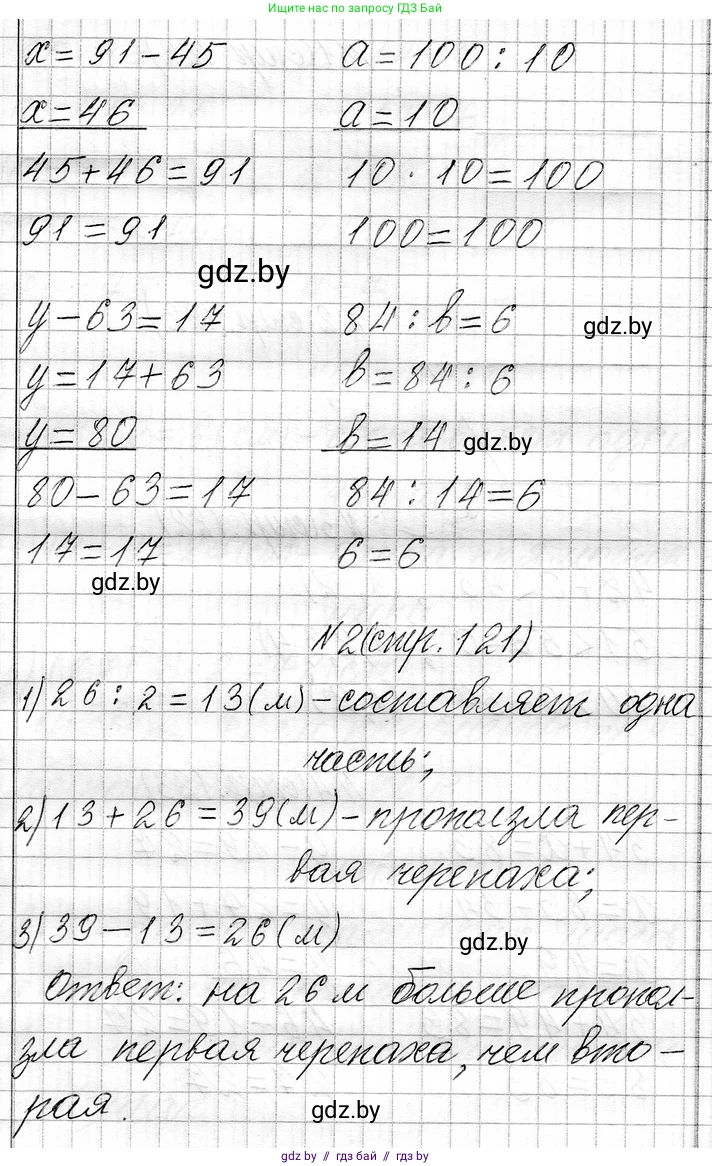 Ищите нас по запросу ГДЗ Бай
x = 91 - 45
a = 100 : 10
x = 46
a = 10
45 + 46 = 91
10 · 10 = 100
91 = 91
100 = 100
gdz.by
y - 63 = 17
84 : b = 6
gdz.by
y = 17 + 63
b = 84 : 6
y = 80
b = 14
gdz.by
80 - 63 = 17
84 : 14 = 6
17 = 17
6 = 6
gdz.by
№2(стр. 121)
1) 26 : 2 = 13 (м) - составляет одна
часть;
2) 13 + 26 = 39 (м) - проползла пер-
вая черепаха;
3) 39 - 13 = 26 (м)
gdz.by
Ответ: на 26 м больше пропол-
зла первая черепаха, чем вто-
рая.
gdz.by
gdz.by // гдз бай // gdz.by